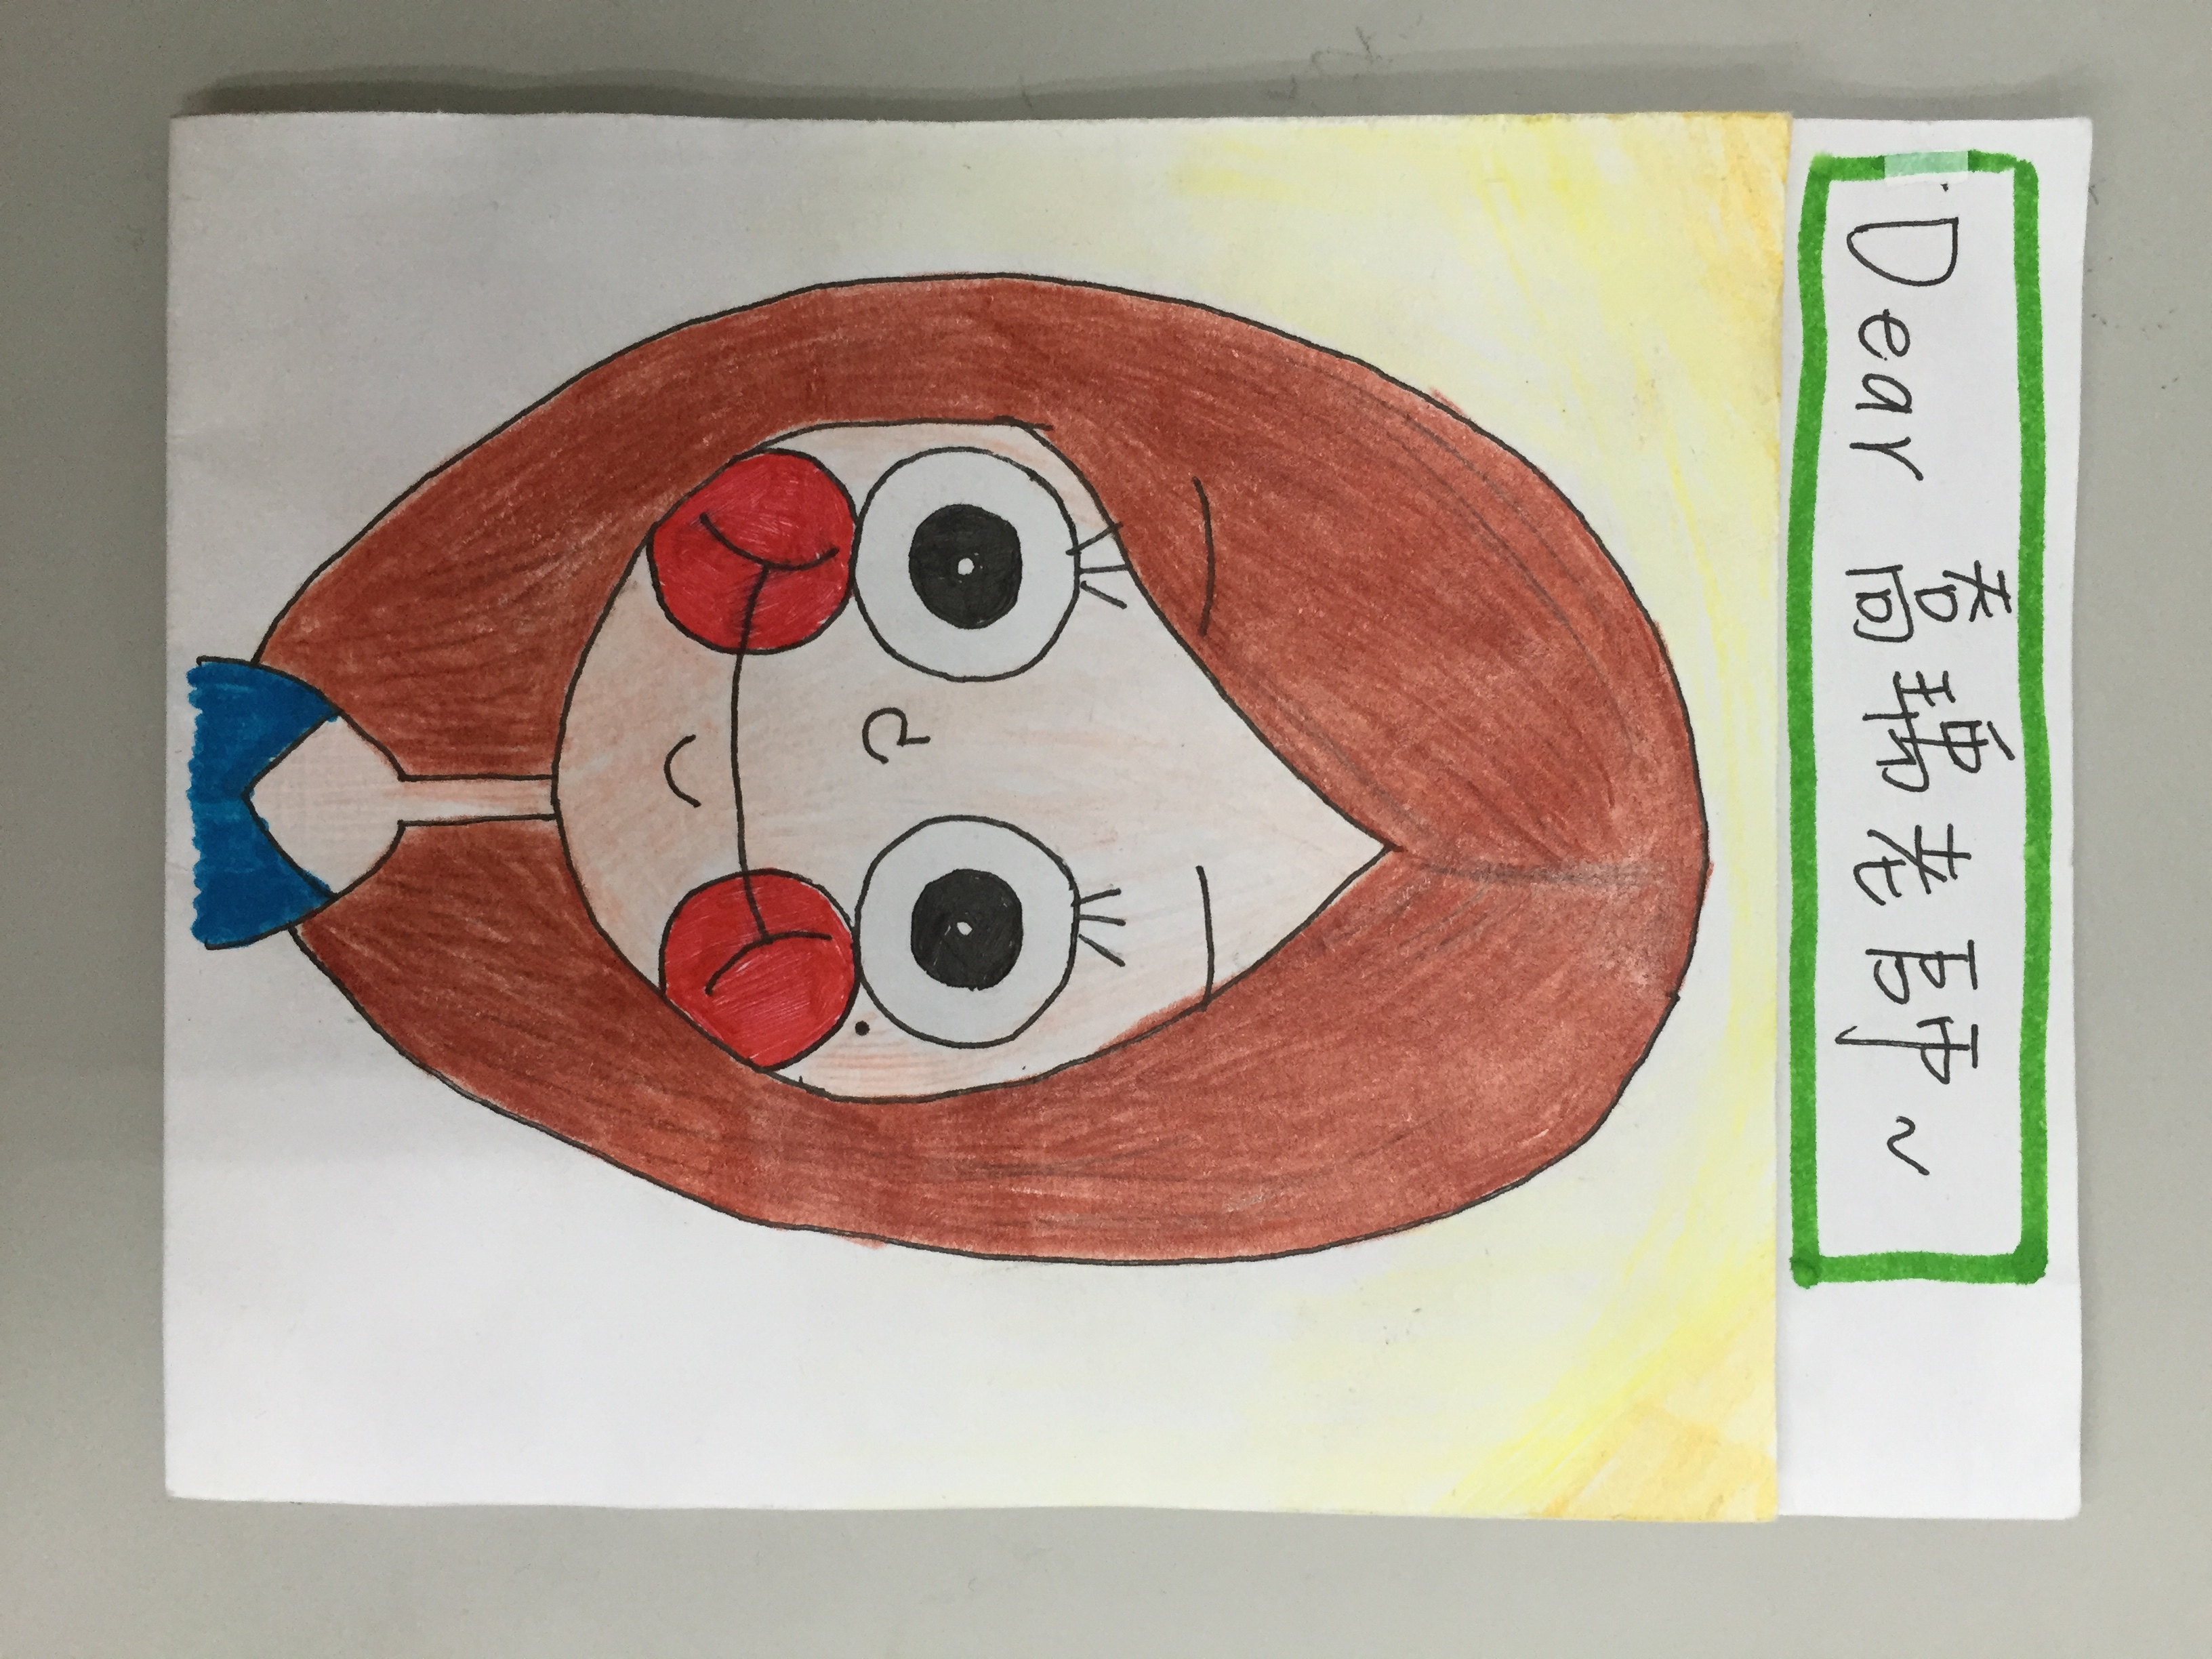 Dear 喬瑀老師~